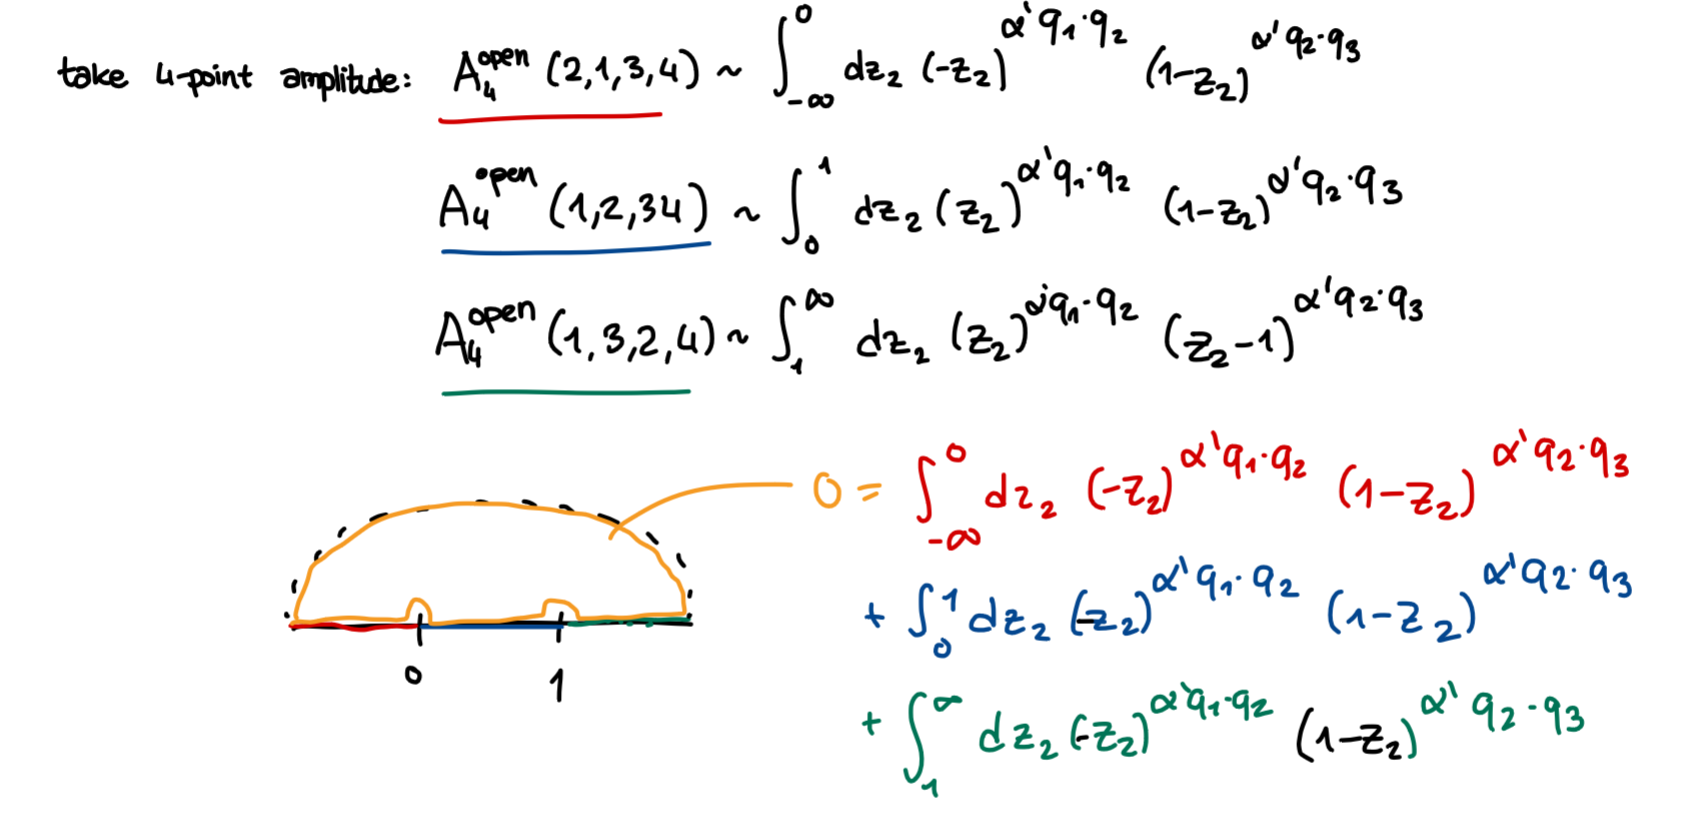 take 4-point amplitude: A₄^open (2,1,3,4) ~ ∫_{-∞}^{0} dz₂ (-z₂)^{α'q₁·q₂} (1-z₂)^{α'q₂·q₃}
A₄^open (1,2,34) ~ ∫_{0}^{1} dz₂ (z₂)^{α'q₁·q₂} (1-z₂)^{α'q₂·q₃}
A₄^open (1,3,2,4) ~ ∫_{1}^{∞} dz₂ (z₂)^{α'q₁·q₂} (z₂-1)^{α'q₂·q₃}
0 = ∫_{-∞}^{0} dz₂ (-z₂)^{α'q₁·q₂} (1-z₂)^{α'q₂·q₃}
+ ∫_{0}^{1} dz₂ (-z₂)^{α'q₁·q₂} (1-z₂)^{α'q₂·q₃}
0 1
+ ∫_{1}^{∞} dz₂ (-z₂)^{α'q₁·q₂} (1-z₂)^{α'q₂·q₃}